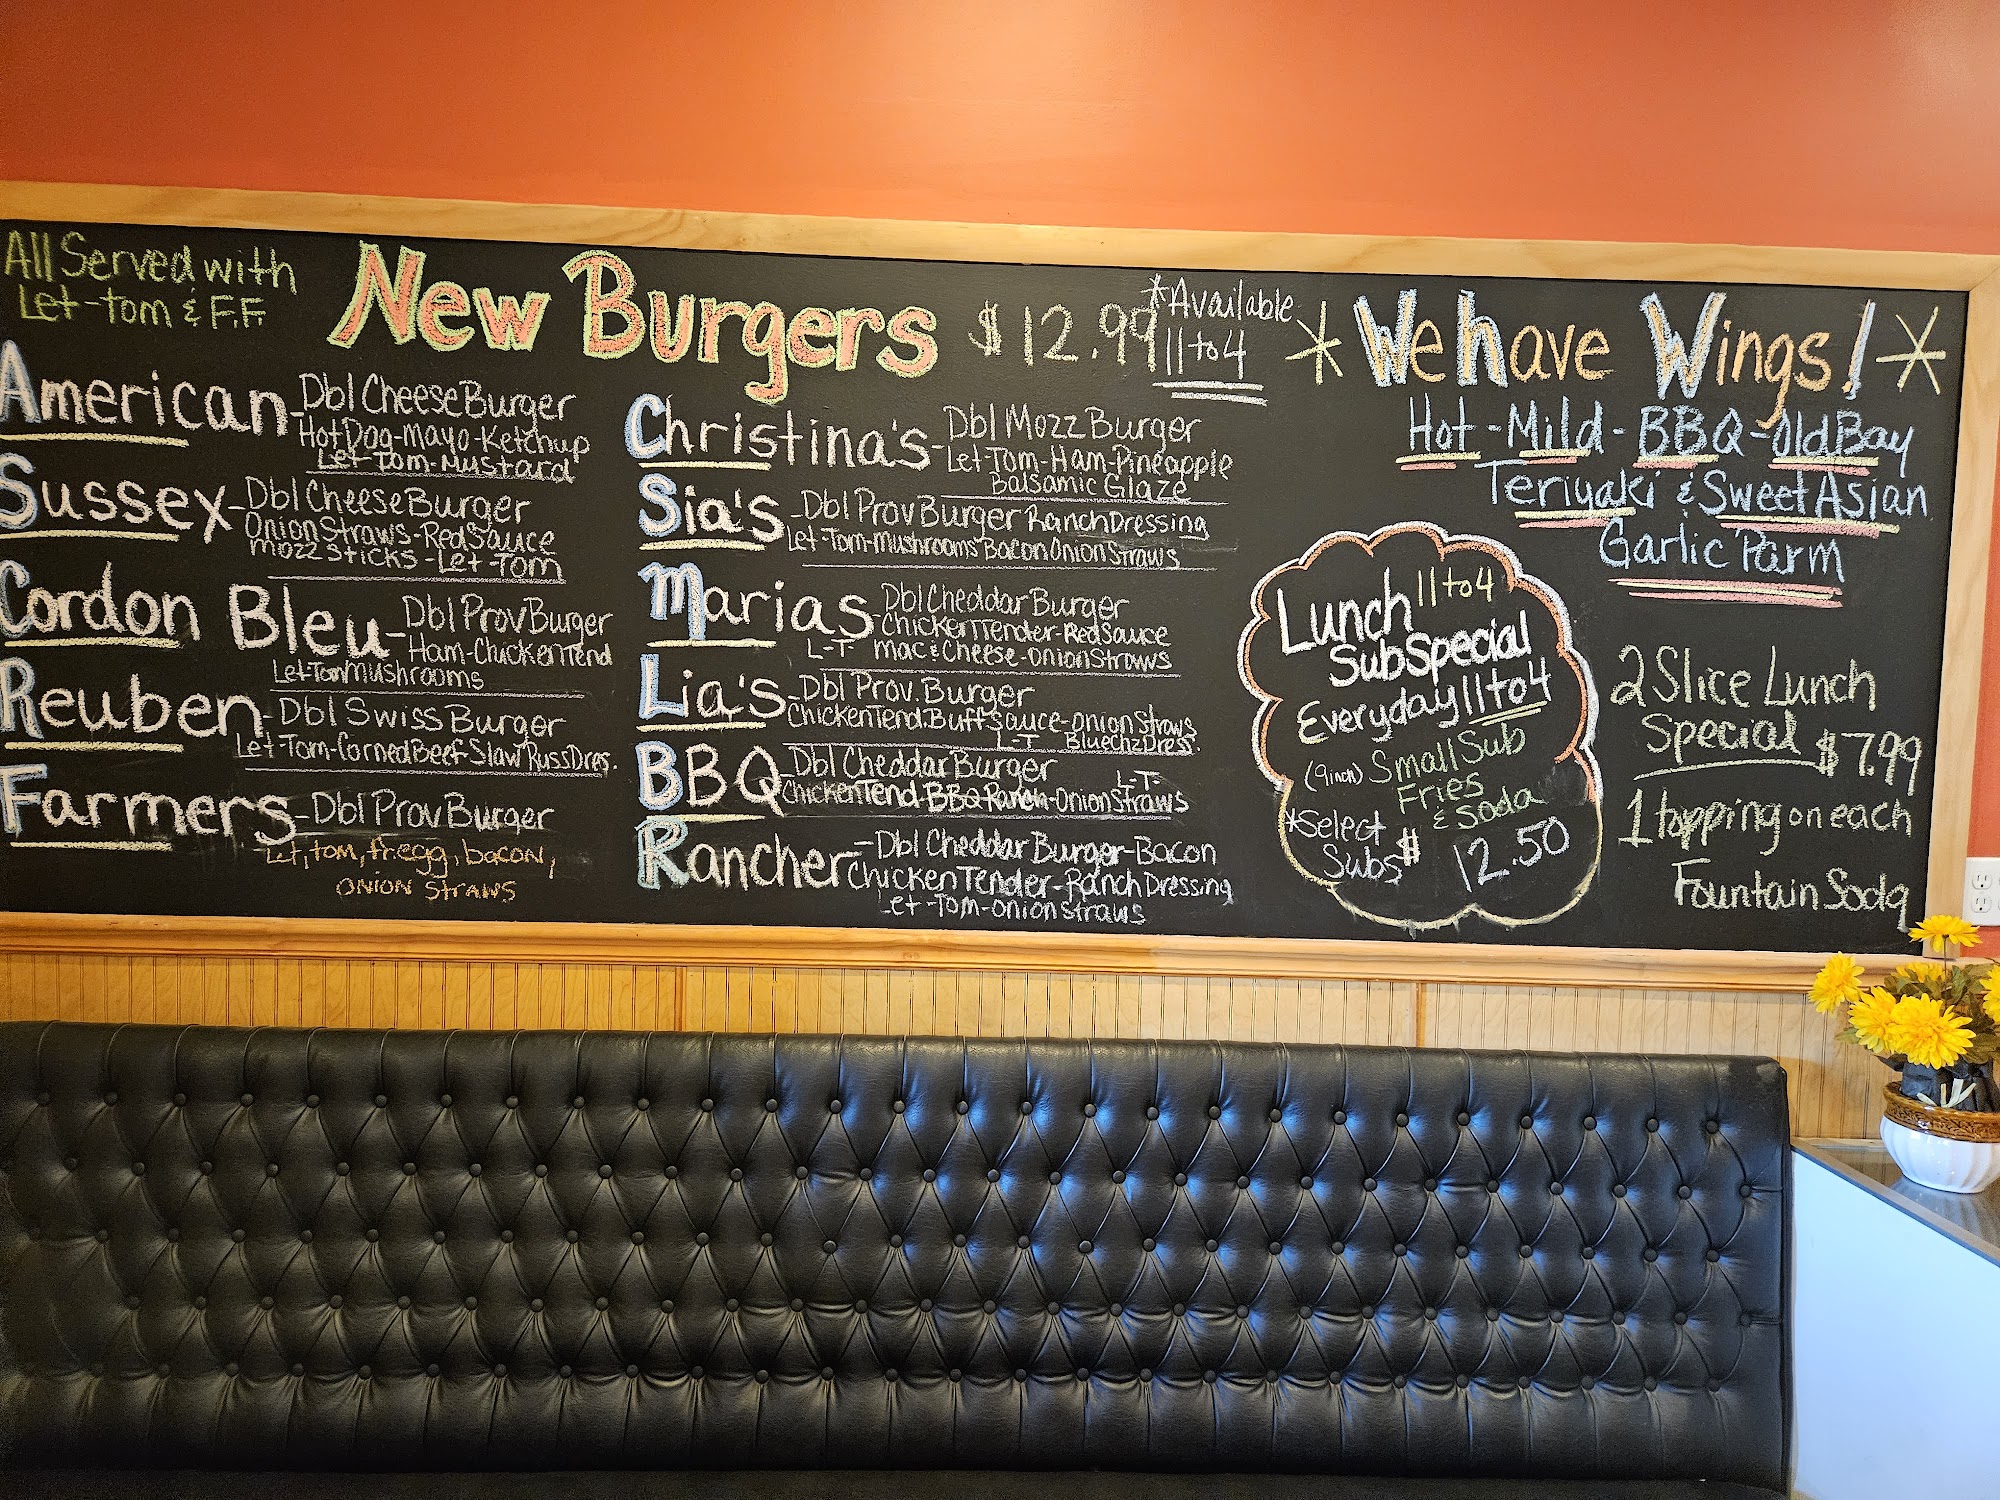 All Served with
Let-tom & F.F.
New Burgers $12.99
*Available
11 to 4
American-Dbl CheeseBurger
HotDog-Mayo-Ketchup
Let-Tom-Mustard
Sussex-Dbl CheeseBurger
OnionStraws-RedSauce
Mozz Sticks-Let-Tom
Cordon Bleu-Dbl ProvBurger
Ham-ChickenTend
Let-Tom Mushrooms
Reuben-Dbl Swiss Burger
Let-Tom-CornedBeef-Slaw RussDres.
Farmers-Dbl ProvBurger
Let, tom, fr.egg, bacon,
onion straws
Christina's-Dbl Mozz Burger
Let-Tom-Ham-Pineapple
Balsamic Glaze
Sia's-Dbl Prov Burger RanchDressing
Let-Tom-Mushrooms Bacon Onion Straws
Marias-Dbl Cheddar Burger
ChickenTender-RedSauce
L-T- Mac & Cheese-onionstraws
Lia's-Dbl Prov. Burger
ChickenTend.Buff Sauce-onion Straws
L-T BlueChzDress.
BBQ-Dbl Cheddar Burger L-T-
ChickenTend-BBQ Ranch-Onion Straws
Rancher-Dbl Cheddar Burger-Bacon
ChickenTender-Ranch Dressing
Let-Tom-onion straws
* We have Wings! *
Hot-Mild-BBQ-Old Bay
Teriyaki & Sweet Asian
Garlic Parm
Lunch 11 to 4
Sub Special
Everyday 11 to 4
(9inch) Small Sub
Fries
& Soda
*Select
Subs $ 12.50
2 Slice Lunch
Special $7.99
1 topping on each
Fountain Soda